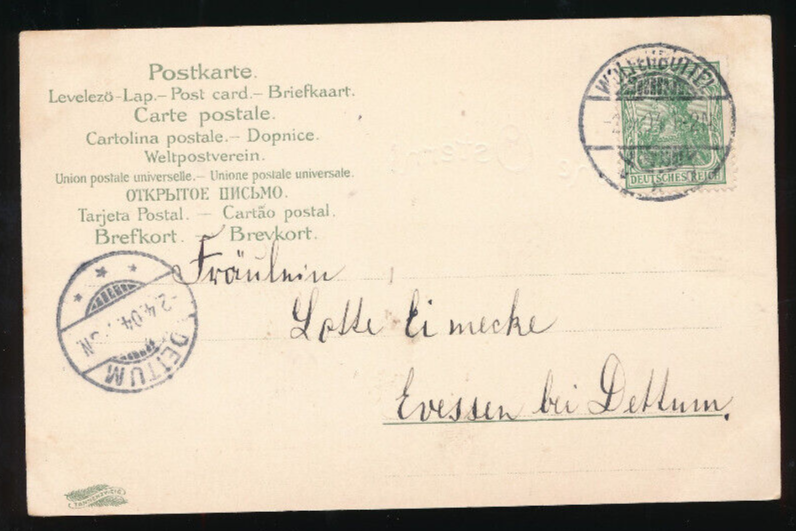 Postkarte.
Levelező-Lap.– Post card.– Briefkaart.
Carte postale.
Cartolina postale.– Dopnice.
Weltpostverein.
Union postale universelle.– Unione postale universale.
ОТКРЫТОЕ ПИСЬМО.
Tarjeta Postal. — Cartão postal.
Brefkort. — Brevkort.
WOLFENBÜTTEL
DEUTSCHES REICH
Fräulein
Lotte Eimecke
Evessen bei Dettum.
-2.4.04.
N
DETTUM